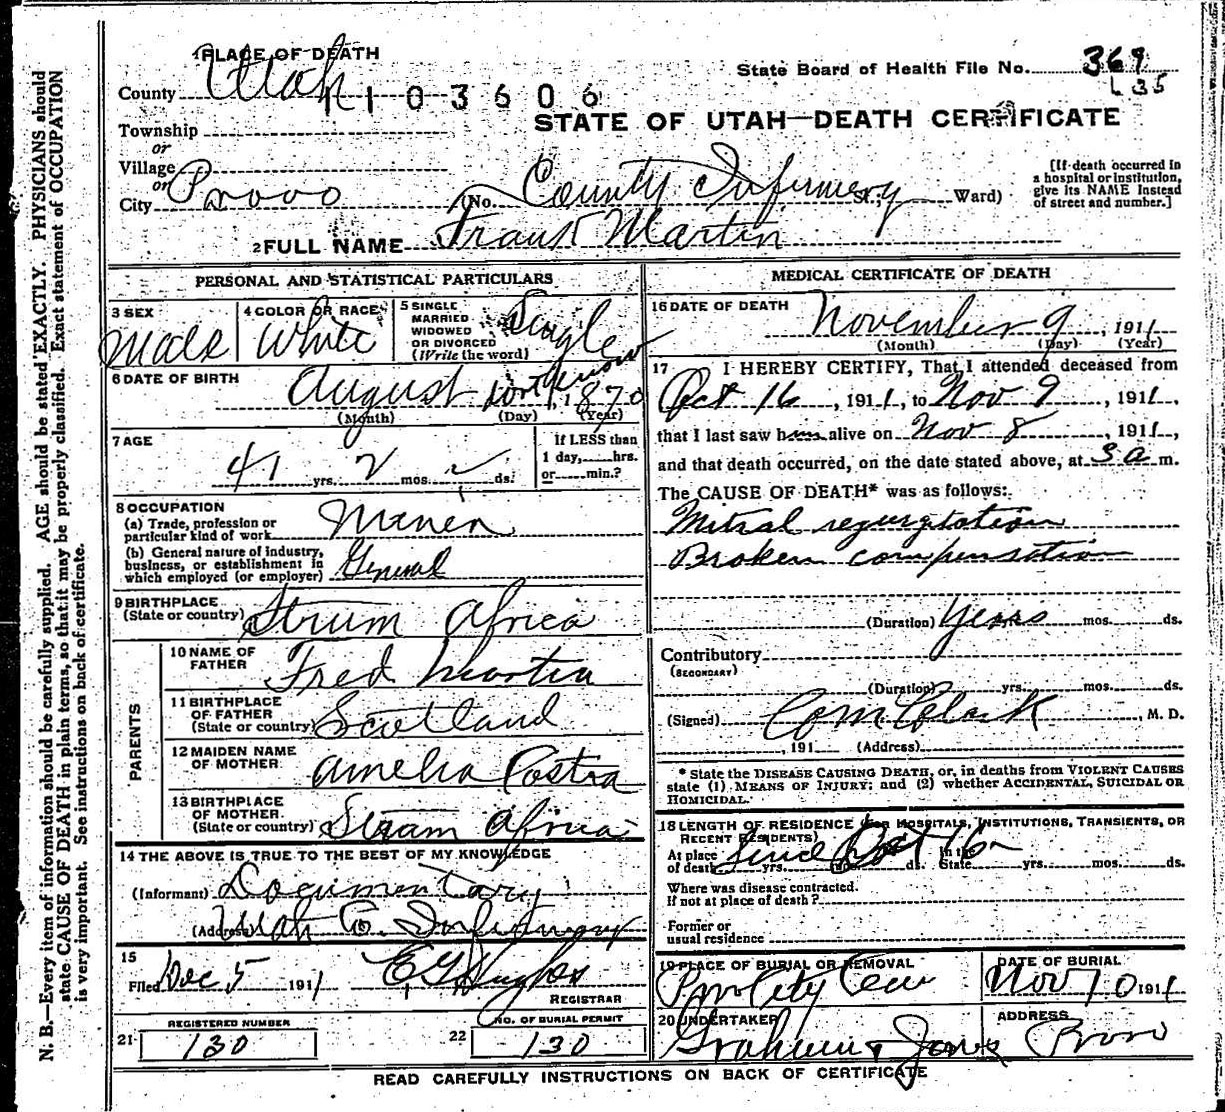 1 PLACE OF DEATH
County Utah
1103606
State Board of Health File No. 369
L 35
STATE OF UTAH—DEATH CERTIFICATE
Township
or
Village
or
City Provo
(No. County Infirmery St.; Ward)
[If death occurred in
a hospital or institution,
give its NAME instead
of street and number.]
2 FULL NAME Frank Martin
PERSONAL AND STATISTICAL PARTICULARS
3 SEX
Male
4 COLOR OR RACE
White
5 SINGLE
MARRIED
WIDOWED
OR DIVORCED
(Write the word)
Single
6 DATE OF BIRTH August dont know, 1870
(Month) (Day) (Year)
7 AGE
41 yrs. 2 mos. ds.
If LESS than
1 day, hrs.
or min.?
8 OCCUPATION
(a) Trade, profession or
particular kind of work Miner
(b) General nature of industry,
business, or establishment in
which employed (or employer) General
9 BIRTHPLACE
(State or country) Africa
PARENTS
10 NAME OF
FATHER Fred Martin
11 BIRTHPLACE
OF FATHER
(State or country) Scotland
12 MAIDEN NAME
OF MOTHER Amelia Costra
13 BIRTHPLACE
OF MOTHER
(State or country) Africa
14 THE ABOVE IS TRUE TO THE BEST OF MY KNOWLEDGE
(Informant) Documentary
(Address) Utah Co. Infirmary
15
Filed Dec 5 1911 E G Hughes
REGISTRAR
REGISTERED NUMBER
21 130
NO. OF BURIAL PERMIT
22 130
MEDICAL CERTIFICATE OF DEATH
16 DATE OF DEATH November 9, 1911
(Month) (Day) (Year)
17 I HEREBY CERTIFY, That I attended deceased from
Oct 16, 1911, to Nov 9, 1911,
that I last saw him alive on Nov 8, 1911,
and that death occurred, on the date stated above, at 3 a m.
The CAUSE OF DEATH* was as follows:
Mitral regurgtation
Broken compensation
(Duration) Years mos. ds.
Contributory
(SECONDARY)
(Duration) yrs. mos. ds.
(Signed) Clark, M. D.
, 191 (Address)
* State the DISEASE CAUSING DEATH, or, in deaths from VIOLENT CAUSES
state (1) MEANS OF INJURY; and (2) whether ACCIDENTAL, SUICIDAL OR
HOMICIDAL.
18 LENGTH OF RESIDENCE (FOR HOSPITALS, INSTITUTIONS, TRANSIENTS, OR
RECENT RESIDENTS)
At place
of death yrs. mos. ds. In the
State yrs. mos. ds.
Since Oct 16
Where was disease contracted.
If not at place of death?
Former or
usual residence
19 PLACE OF BURIAL OR REMOVAL
Prov City Cem
DATE OF BURIAL
Nov 10 1911
20 UNDERTAKER
Graham & Jones
ADDRESS
Provo
READ CAREFULLY INSTRUCTIONS ON BACK OF CERTIFICATE
N. B.—Every item of information should be carefully supplied. AGE should be stated EXACTLY. PHYSICIANS should
state CAUSE OF DEATH in plain terms, so that it may be properly classified. Exact statement of OCCUPATION
is very important. See instructions on back of certificate.